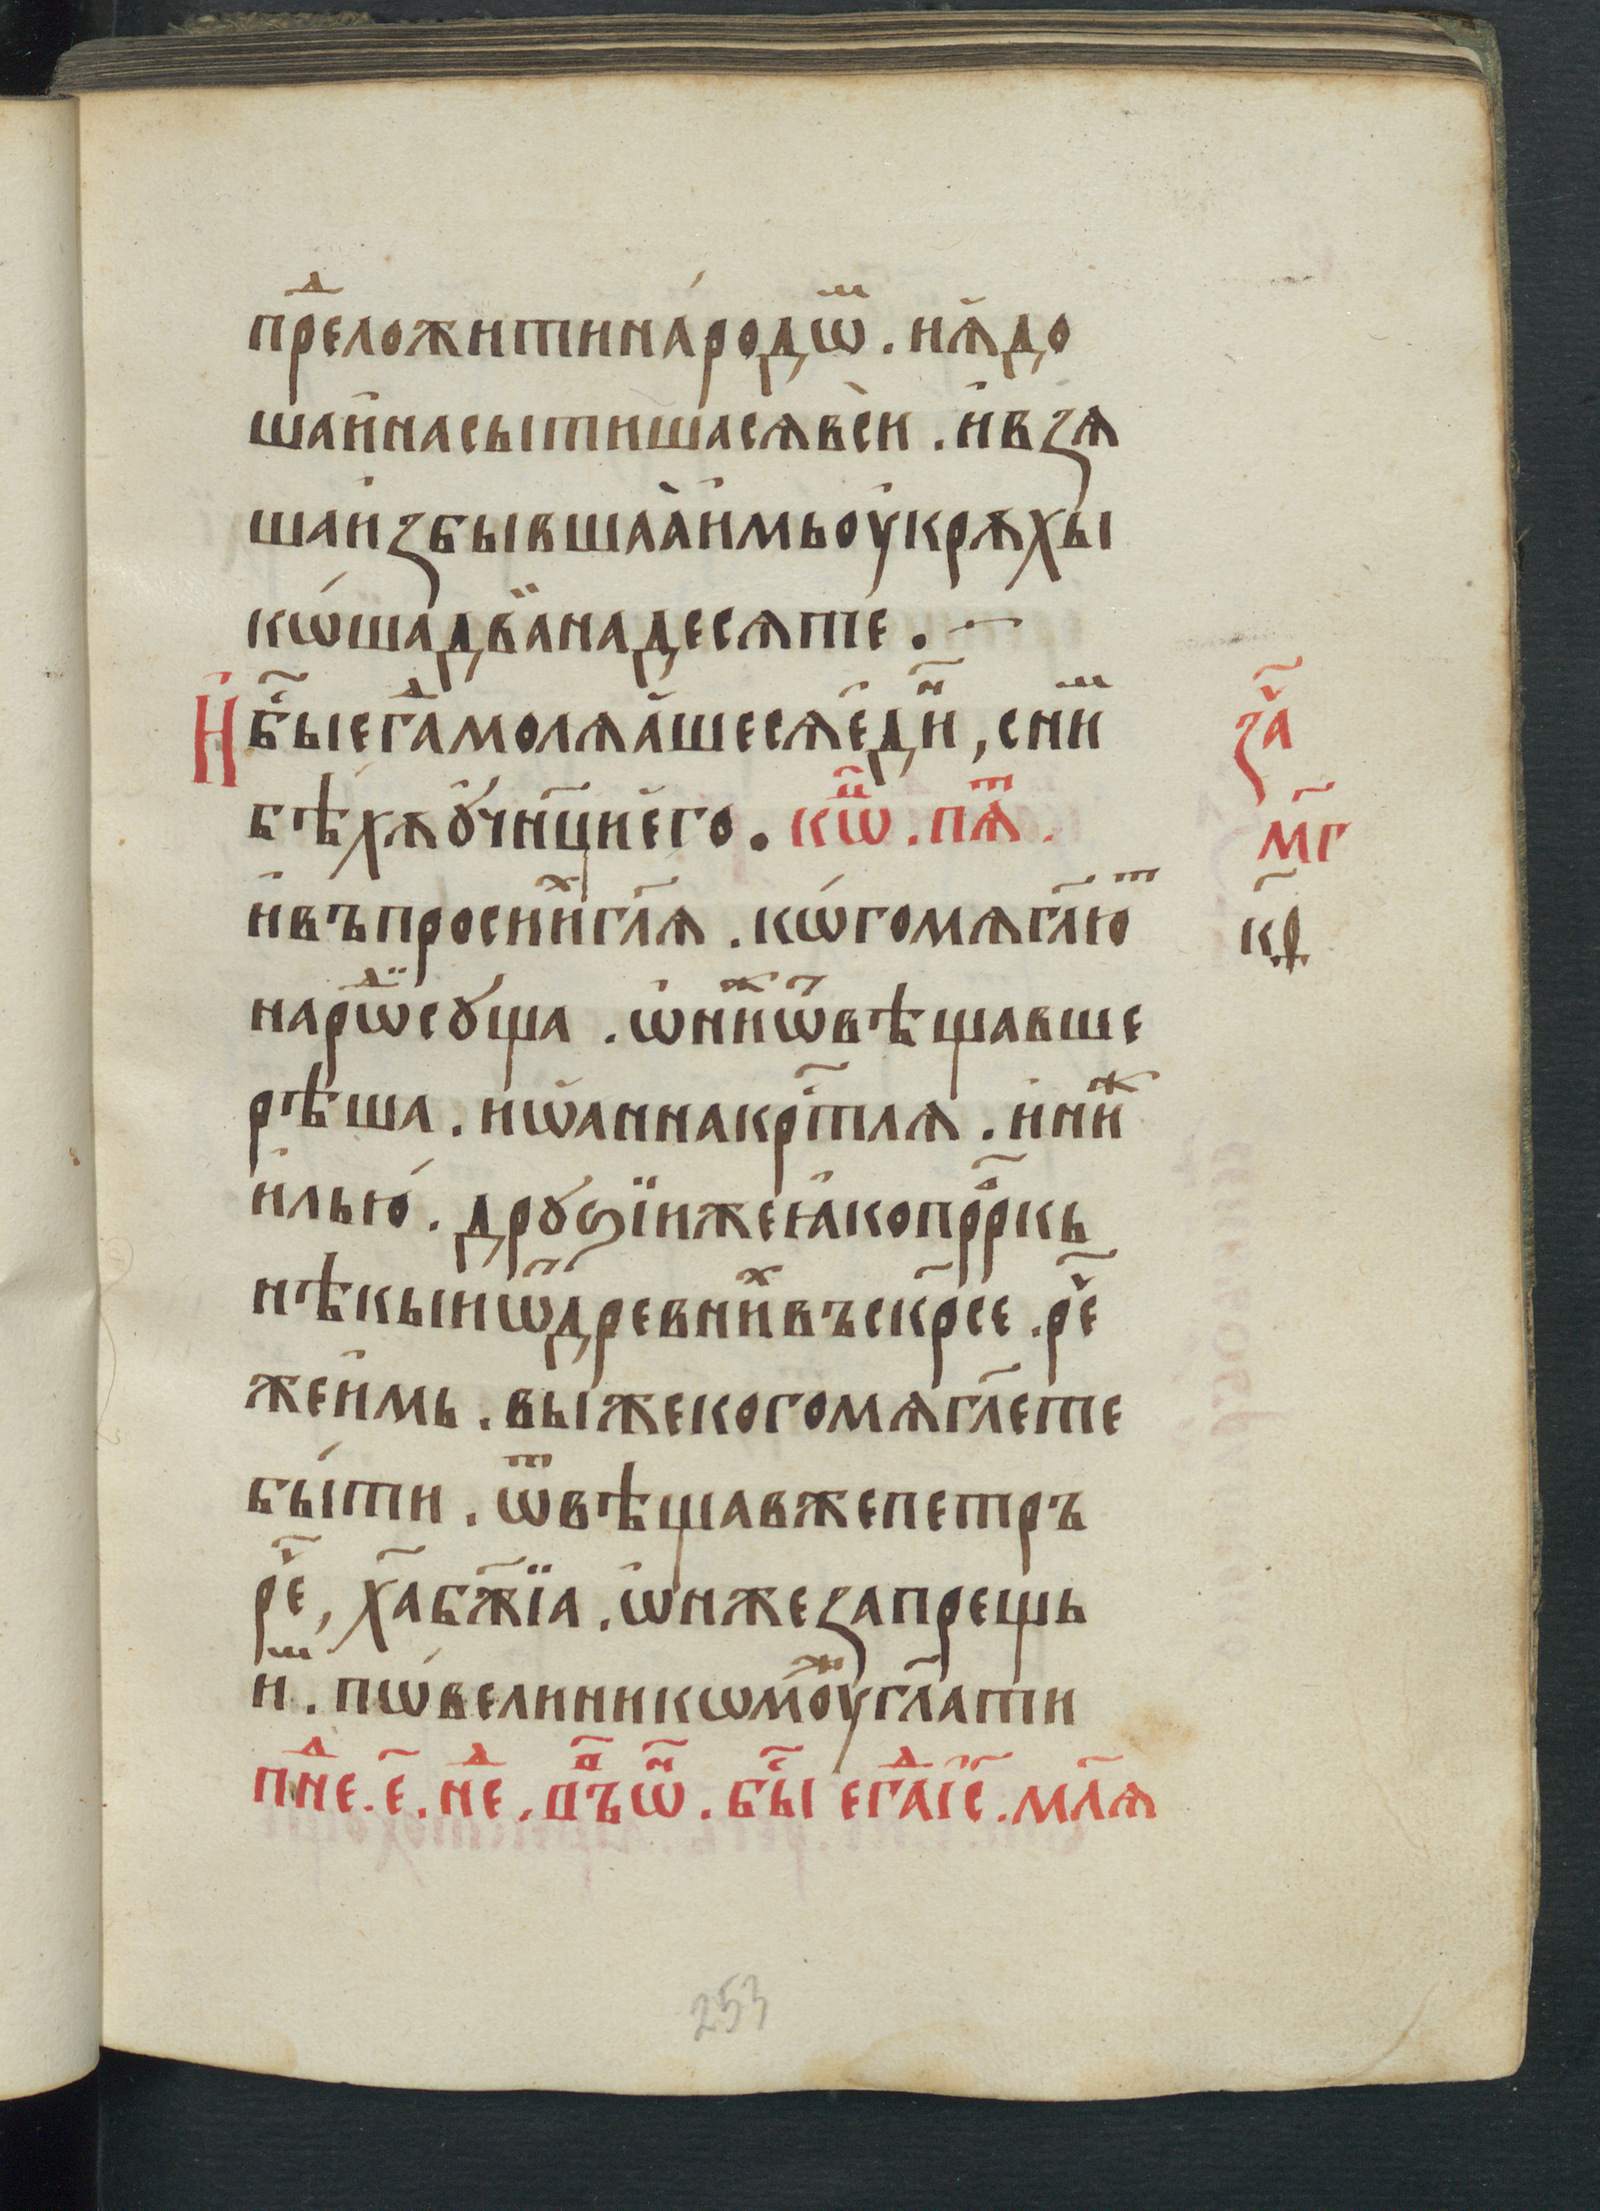 прⷣеложитинаро́дѡⷨ. иꙗ҆до
шаи҆насытишасѧвси̇. и҆взѧ
шаи҆збывшаа҆и҆мьоу҆крѧхы
кѡ́шадвана́десѧте. ~
И҆ бы҇сегⷣамолѧа҆шесѧє҆диⷩ, сниⷨ
бѣхѧꙋ҆чн҃циє҆го. коⷩ҇. пѧⷮ.
и҆въпросиⷯи҆гл҃ѧ. кѡ́гомѧгл҃юⷮ
нарѡⷣсꙋща. ѡ҆ниⷤѿвѣщавше
рѣша. иѡ҆аннакрⷭ҇тлѧ. и҆ниⷤ
и҆лью́. дрꙋѕїижеꙗ҆копрⷪ҇ркь
нѣкыиѿдревниⷯвъскр҃се. реⷱ҇
жеи҆мь. выжекогомѧгл҃ете
бы́ти. ѿвѣщавжепетръ
реⷱ҇, ха҃бж҃їа. ѡ҆нжезапрещь
иⷨ. пѡ́велиникѡмоуⷤгл҃ати
пнⷣе. є҃. нⷣе. дъⷩ҇ѡⷮ. бы҇сегⷣаі҆с҃. мл҃ѧ
заⷱ҇
м҃г
к҃р
253